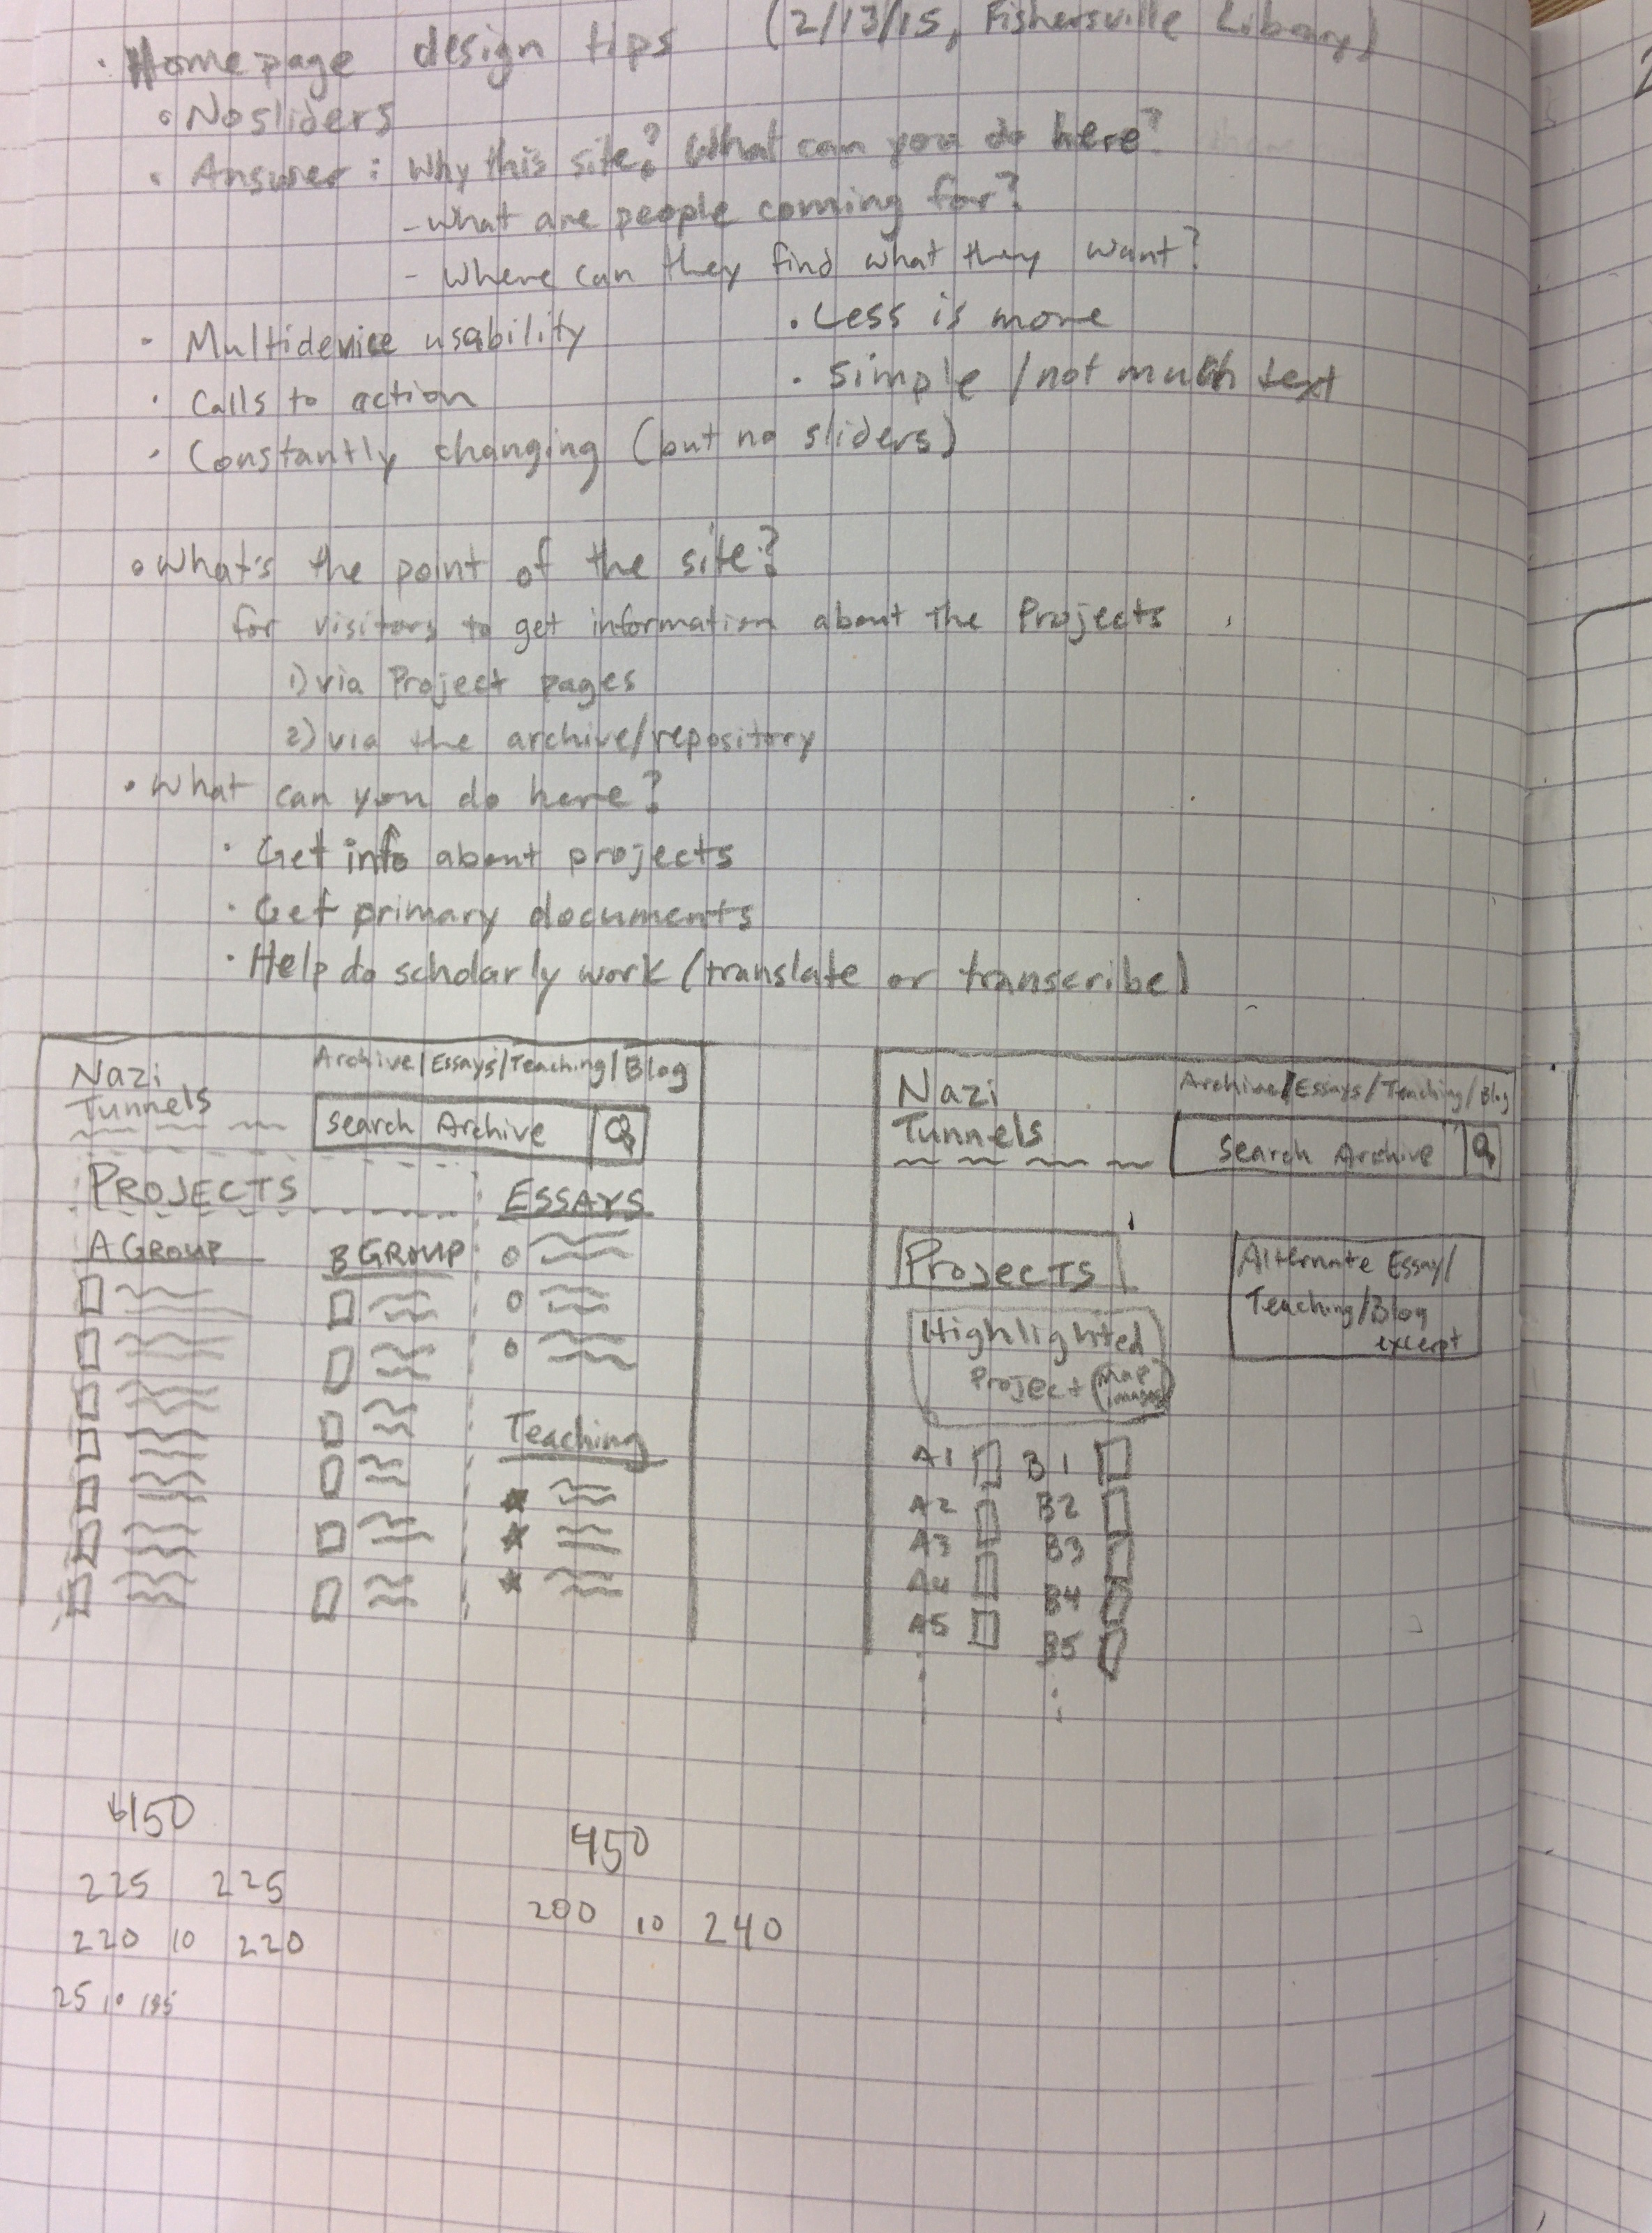 · Homepage design tips (2/13/15, Fishersville Library)
• No sliders
• Answer: Why this site? What can you do here?
- what are people coming for?
- where can they find what they want?
• Multidevice usability
• Calls to action
• Constantly changing (but no sliders)
• Less is more
• simple / not much text
• What's the point of the site?
for visitors to get information about the Projects
1) via Project pages
2) via the archive/repository
• What can you do here?
• Get info about projects
• Get primary documents
• Help do scholarly work (translate or transcribe)
Nazi
Tunnels
Archive/Essays/Teaching/Blog
Search Archive
PROJECTS
A GROUP
B GROUP
ESSAYS
Teaching
Nazi
Tunnels
Archive/Essays/Teaching/Blog
Search Archive
Projects
Highlighted
Project (map
A1 B1
A2 B2
A3 B3
A4 B4
A5 B5
Alternate Essay/
Teaching/Blog
excerpt
450
225 225
220 10 220
25 10 185
450
200 10 240
2